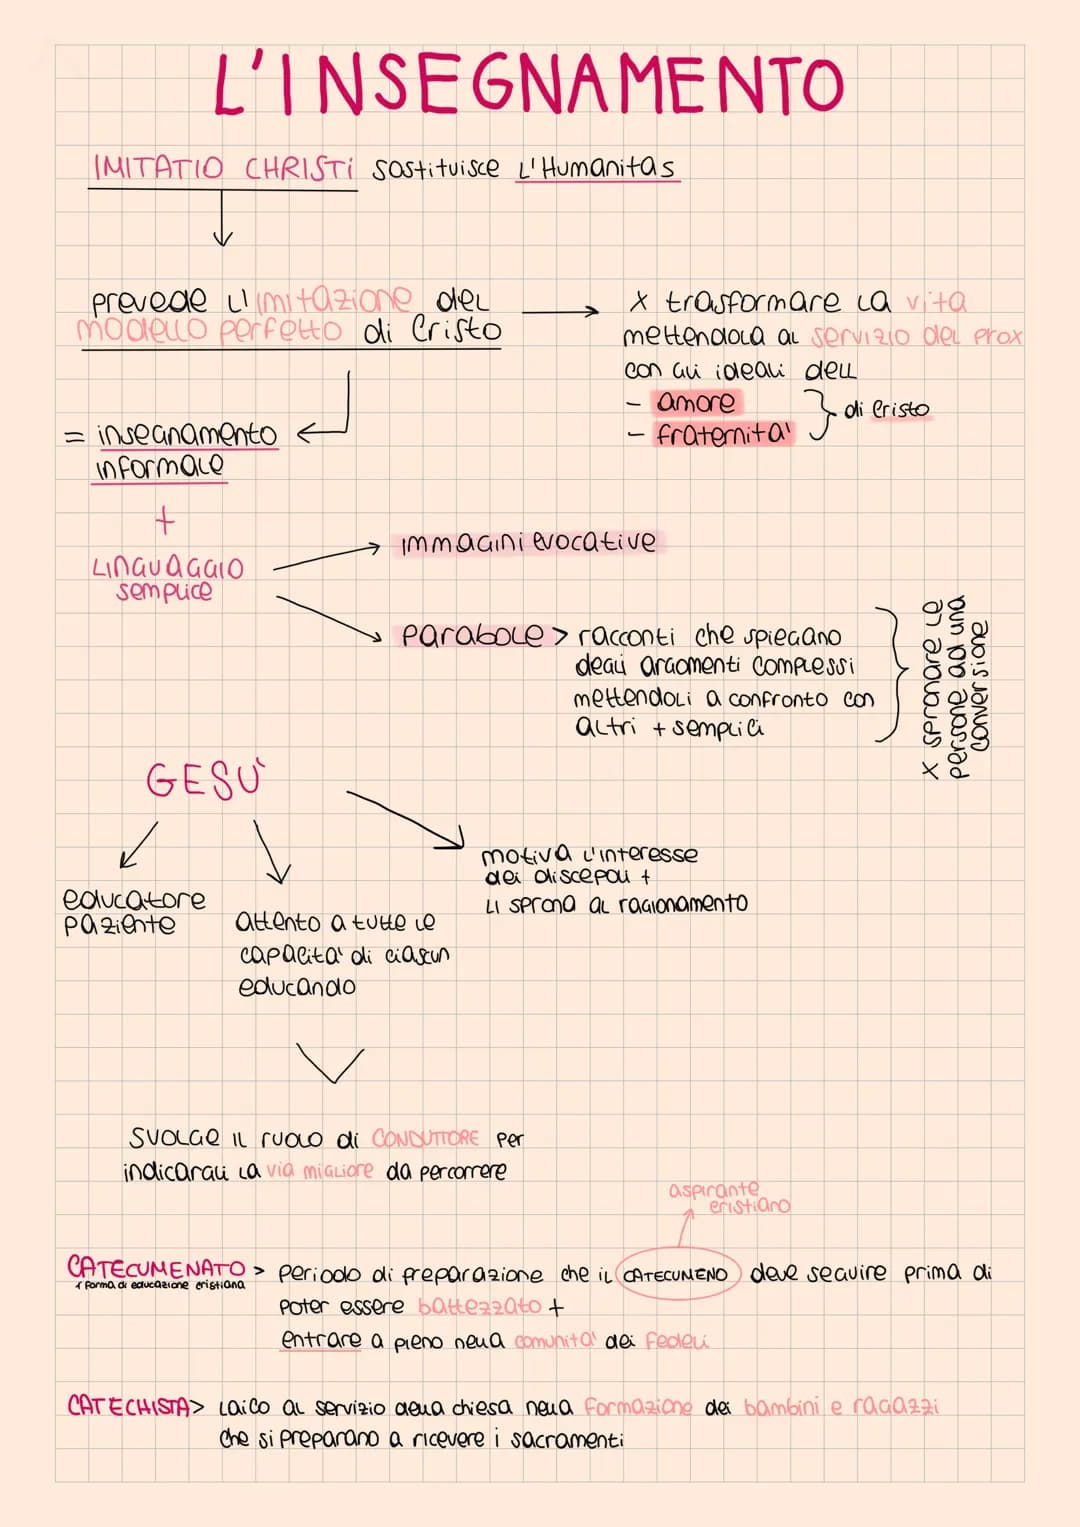 L'INSEGNAMENTO
IMITATIO CHRISTI sostituisce L'Humanitas
prevede l'imitazione del
modello perfetto di Cristo
x trasformare la vita
mettendola al servizio del prox
con gli ideali dell
- amore
- fraternita'
di Cristo
= insegnamento
informale
+
Linguaggio
semplice
immagini evocative
parabole > racconti che spiegano
degli argomenti complessi
mettendoli a confronto con
altri + semplici
x spronare le
persone ad una
conversione
GESU'
educatore
paziente
attento a tutte le
capacita' di ciascun
educando
motiva l'interesse
dei discepoli +
li sprona al ragionamento
svolge il ruolo di CONDUTTORE per
indicargli la via migliore da percorrere
aspirante
cristiano
CATECUMENATO > periodo di preparazione che il CATECUMENO deve seguire prima di
forma di educazione cristiana
poter essere battezzato +
entrare a pieno nella comunita' dei fedeli
CATECHISTA > Laico al servizio della chiesa nella formazione dei bambini e ragazzi
che si preparano a ricevere i sacramenti